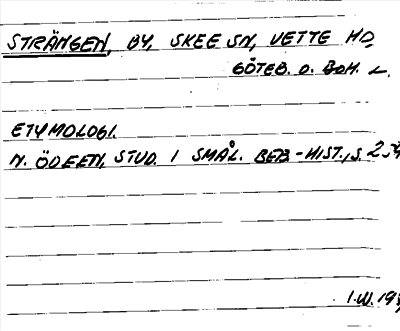 STRÄNGEN, BY, SKEE SN, VETTE HD,
GÖTEB. O. BOH. L.
ETYMOLOGI.
N. ÖDEEN, STUD. I SMÅL. BEB.-HIST., S.
I.W.